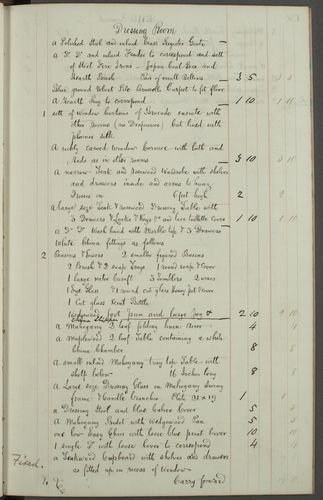 Dressing Room
a Polished Steel and inlaid Brass Register Grate
a Do Do and inlaid Fender to correspond and sett
of Steel Fire Irons - Japan Coal Box and
Hearth Brush Pair of small Bellows 3 5
Blue ground Velvet Pile Brussells Carpet to fit floor
a Hearth Rug to correspond 1 10
1 sett of window curtains of Brocade ensuite with
other rooms (no Draperies) but lined with
plainer silk
a richly carved window cornice with both and
Rods as in other rooms 5 10
a narrow Teak and rosewood Wardrobe with shelves
and drawers inside and arms to hang
Dresses in 6 feet high 2
a large size Teak & rosewood Dressing Table with
3 Drawers & Locks & Keys & and lace toilette Cover 1 10
a Do Do Wash hand with Marble top & 3 Drawers
White China fittings as follows
2 Basins & Ewers 2 smaller figured Basins
2 Brush & 2 soap Trays 1 round soap & Cover
1 large water Caraft 3 Tumblers 2 wines
1 Eye Glass & 1 round cut glass Honey pot & cover
1 Cut glass Scent Bottle
foot pan and large Jug & 2 10
a Mahogany 2 leaf folding linen Airer 4
a maplewood 2 leaf Table containing a white
China Chamber 8
a small inlaid Mahogany tray top Table with
shelf below 16 Inches long 8
a Large size Dressing Glass in Mahogany swing
frame & Candle Branches Plate 21 x 19 1
a Dressing Stool and blue Calico Cover 5
a Mahogany Bidet with Wedgwood Pan 5
one low Easy Chair with loose blue print Cover 10
1 single Do with loose Cover to correspond 4
Fixed. a Teakwood Cupboard with shelves and drawers
as fitted up in recess of Window
Carry forward